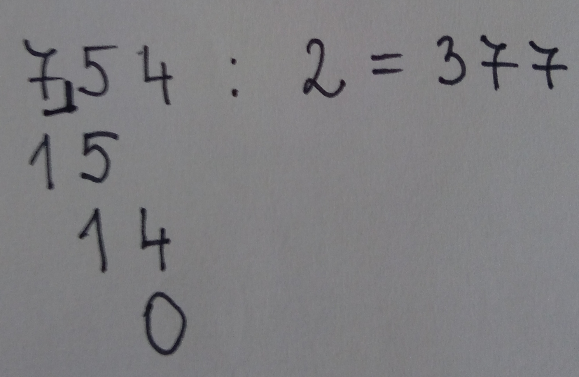 754 : 2 = 377
15
14
0